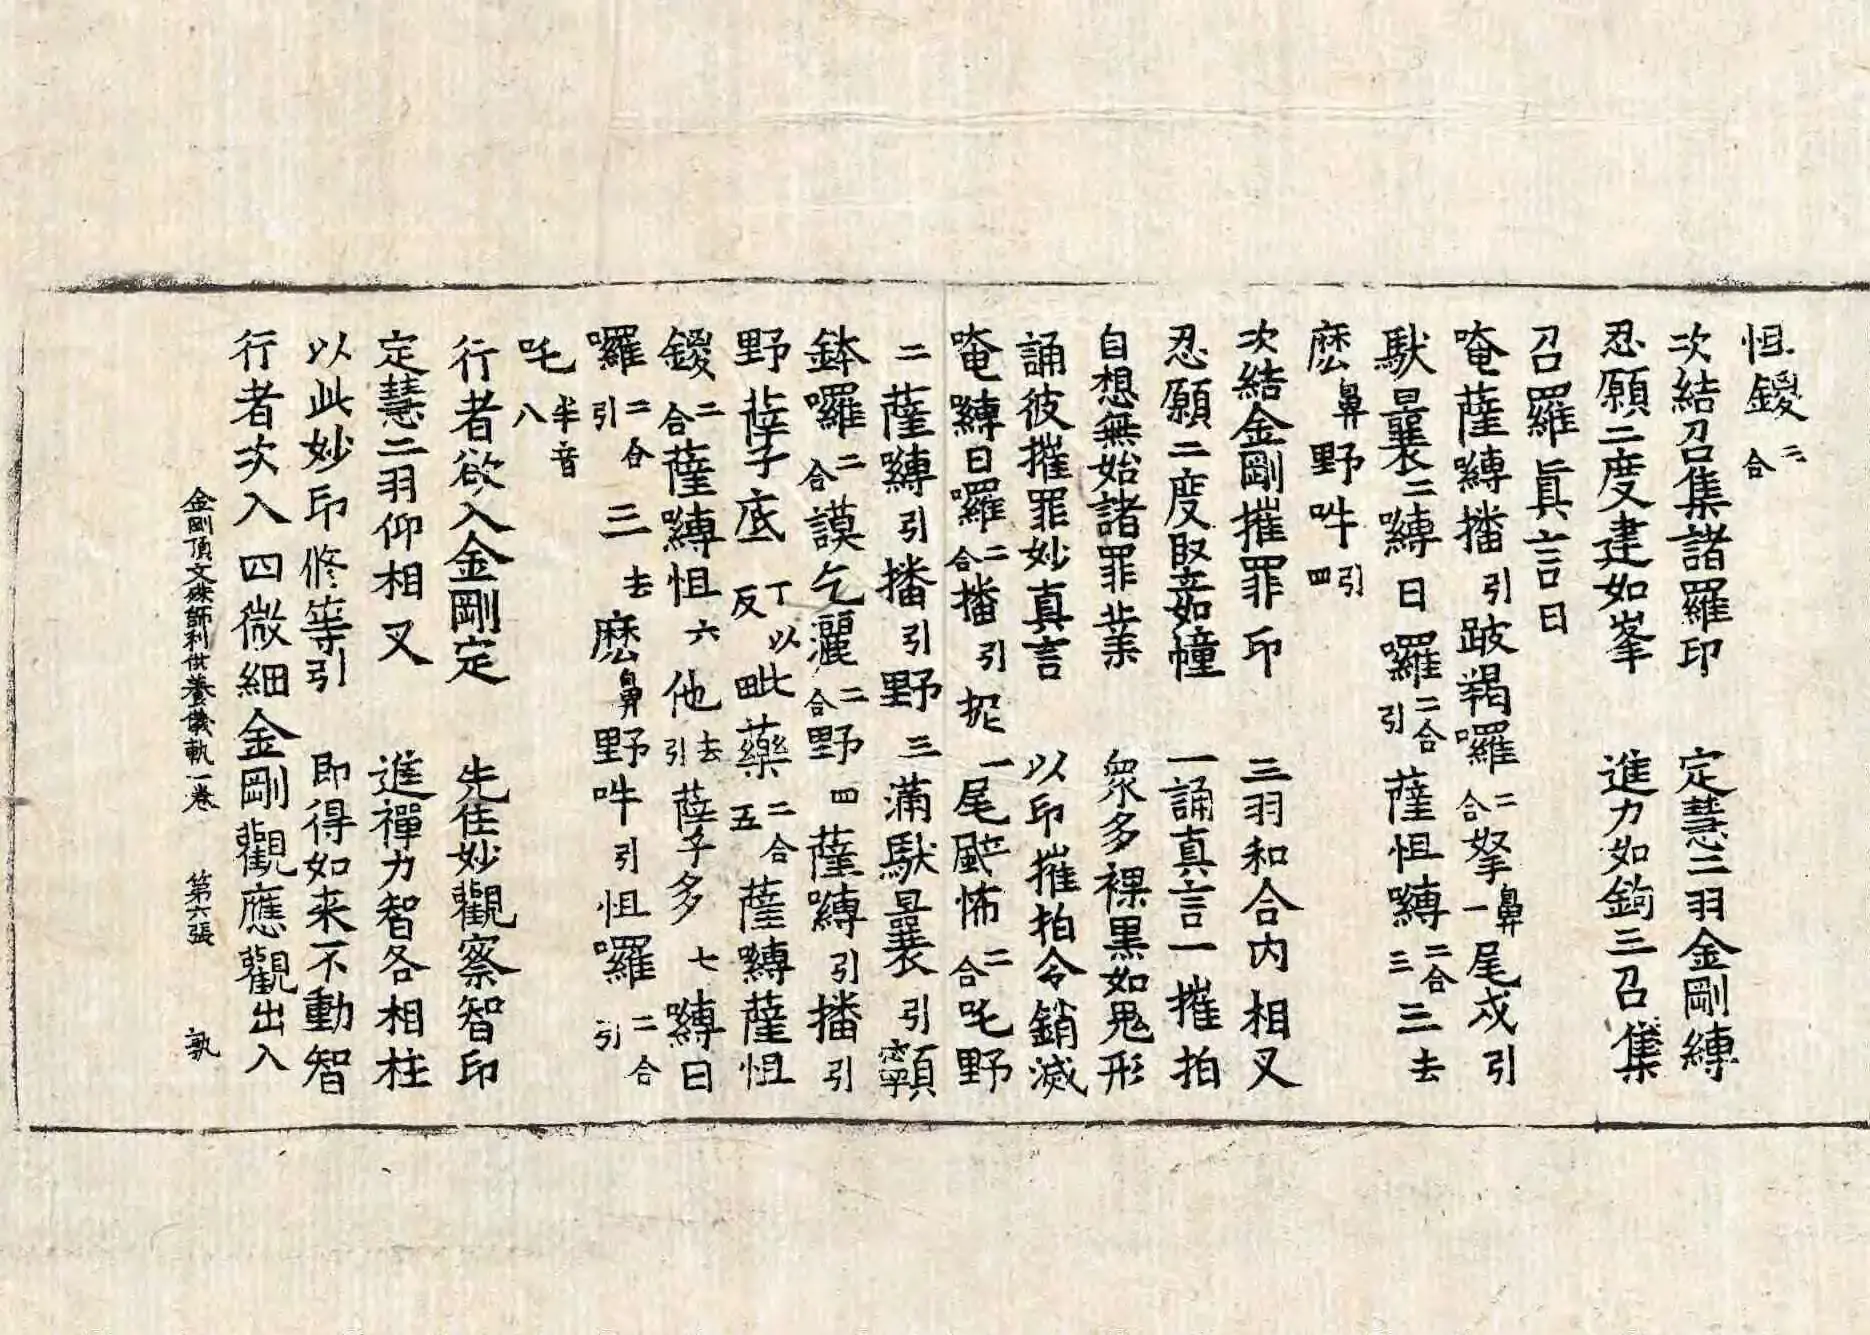 怛鑁二合
次結召集諸羅印 定慧二羽金剛縛
忍願二度建如峯 進力如鉤三召集
召羅眞言曰
唵薩嚩播引跛羯囉二合拏鼻一尾戍引
馱曩二嚩日囉二合引薩怛嚩二合三三去
麽鼻野吽引四
次結金剛摧罪印 二羽和合内相叉
忍願二度竪如幢 一誦真言一摧拍
自想無始諸罪業 衆多裸黒如鬼形
誦彼摧罪妙真言 以印摧拍令銷滅
唵嚩日囉二合播引抳一尾颰怖二合吒野
二薩嚩引播引野三滿馱曩引寧頸
鉢囉二合謨乞灑二合野四薩嚩引播引
野孽底丁以反毗田藥二合五薩嚩薩怛
鑁二合薩嚩怛六他去引孽多七嚩日
囉二合引三去麽鼻野吽引怛囉二合引
吒半音八
行者欲入金剛定 先住妙觀察智印
定慧二羽仰相叉 進禪力智各相柱
以此妙印修等引 即得如来不動智
行者次入四微細金剛觀應觀出入
金剛頂文殊師利供養儀軌一卷 第六張 孰